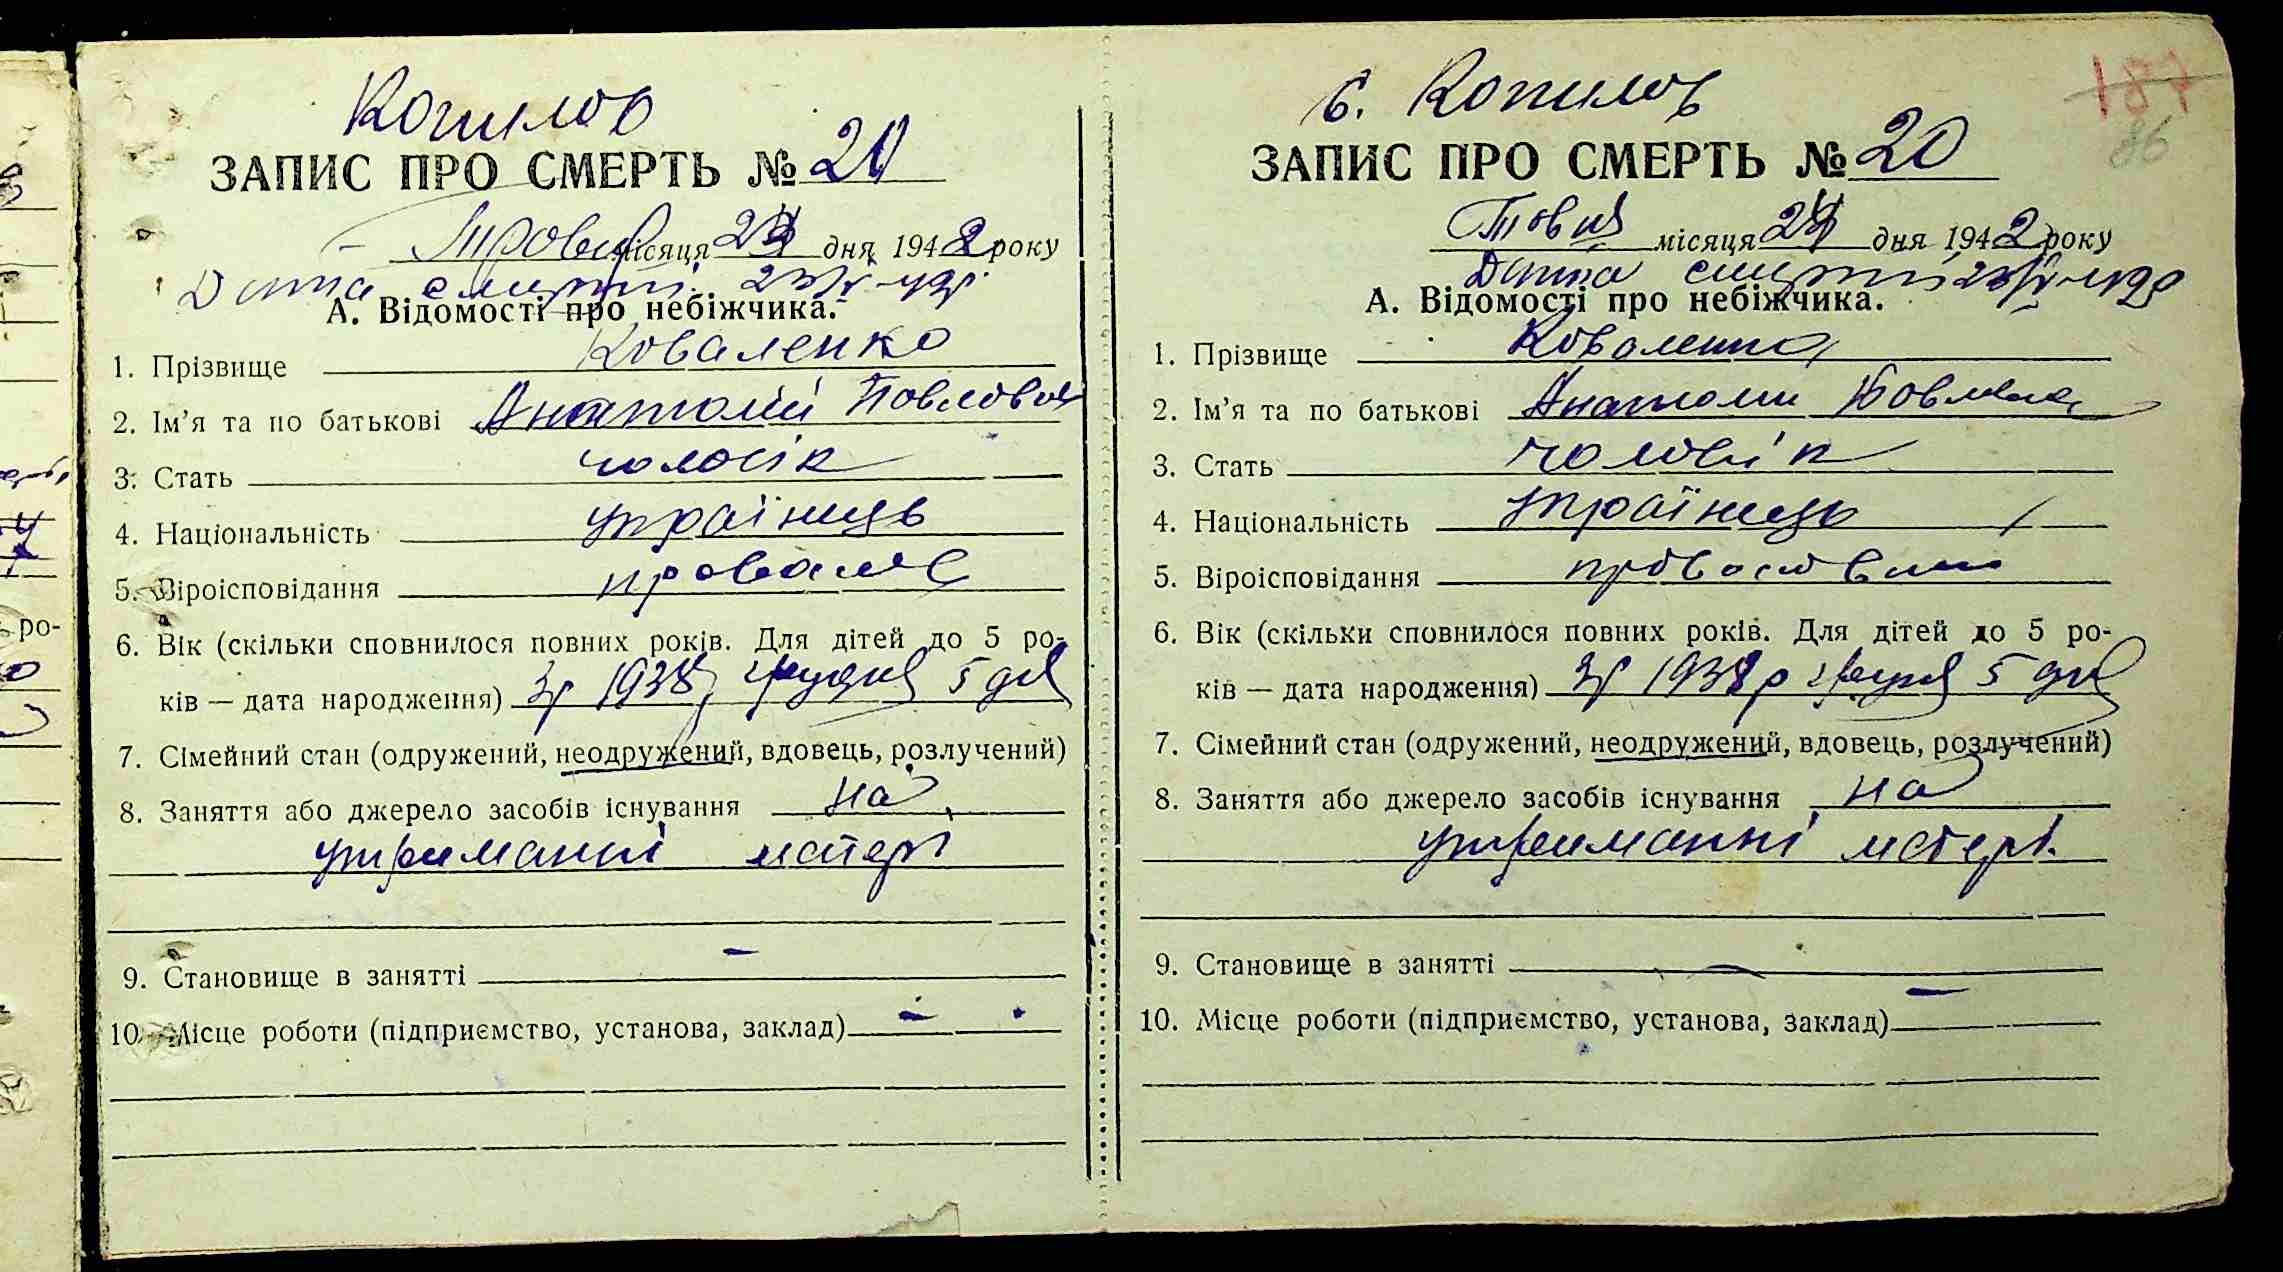 Копилов
ЗАПИС ПРО СМЕРТЬ № 20
місяця 24 дня 1942 року
Дата смерті 23/V-42р
А. Відомості про небіжчика.
1. Прізвище Коваленко
2. Ім’я та по батькові Анатолій Павлович
3. Стать чоловік
4. Національність українець
5. Віроісповідання православ
6. Вік (скільки сповнилося повних років. Для дітей до 5 ро-
ків — дата народження) 3р 1938р грудня 5 дня
7. Сімейний стан (одружений, неодружений, вдовець, розлучений)
8. Заняття або джерело засобів існування на
утриманні матері
9. Становище в занятті -
10. Місце роботи (підприємство, установа, заклад) -
187
86
с. Копилов
ЗАПИС ПРО СМЕРТЬ № 20
місяця 24 дня 1942 року
Дата смерті 23/V-42р
А. Відомості про небіжчика.
1. Прізвище Коваленко
2. Ім’я та по батькові Анатолий Павлович
3. Стать чоловік
4. Національність Українець
5. Віроісповідання православн
6. Вік (скільки сповнилося повних років. Для дітей до 5 ро-
ків — дата народження) 3р 1938р грудня 5 дня
7. Сімейний стан (одружений, неодружений, вдовець, розлучений)
8. Заняття або джерело засобів існування на
утриманні матері.
9. Становище в занятті -
10. Місце роботи (підприємство, установа, заклад) -